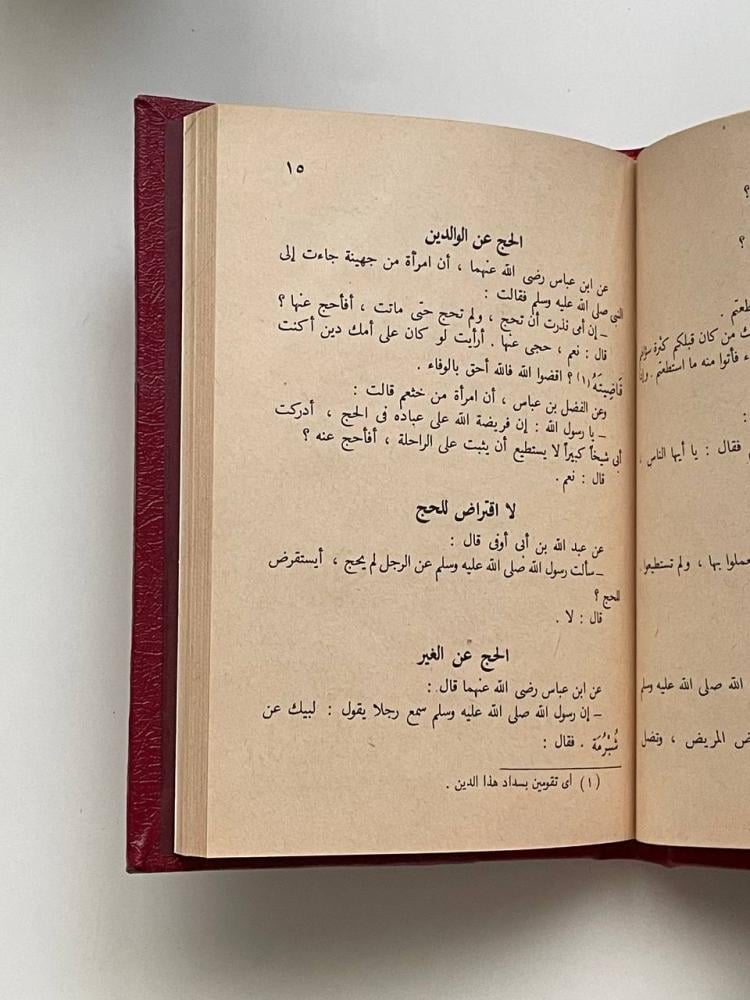 ١٥
الحج عن الوالدين
عن ابن عباس رضى الله عنهما ، أن امرأة من جهينة جاءت إلى
النبى صلى الله عليه وسلم فقالت :
ــ إن أمى نذرت أن تحج ، ولم تحج حتى ماتت ، أفأحج عنها ؟
قال : نعم ، حجى عنها . أرأيت لو كان على أمك دين أكنت
قَاضِيتَهُ (١) ؟ اقضوا الله فالله أحق بالوفاء .
وعن الفضل بن عباس ، أن امرأة من خثعم قالت :
ــ يا رسول الله : إن فريضة الله على عباده فى الحج ، أدركت
أبى شيخاً كبيراً لا يستطيع أن يثبت على الراحلة ، أفأحج عنه ؟
قال : نعم .
لا اقتراض للحج
عن عبد الله بن أبى أوفى قال :
ــ سألت رسول الله صلى الله عليه وسلم عن الرجل لم يحج ، أيستقرض
للحج ؟
قال : لا .
الحج عن الغير
عن ابن عباس رضى الله عنهما قال :
ــ إن رسول الله صلى الله عليه وسلم سمع رجلا يقول : لبيك عن
شُبْرُمَة . فقال :
(١) أى تقومين بسداد هذا الدين .
؟
؟
ك من كان قبلكم كثرة سؤالهم
ء فأتوا منه ما استطعتم . وإذا
:
فقال : يا أيها الناس ،
بها ، ولم تستطيعوا
الله صلى الله عليه وسلم
المريض ، وتضل